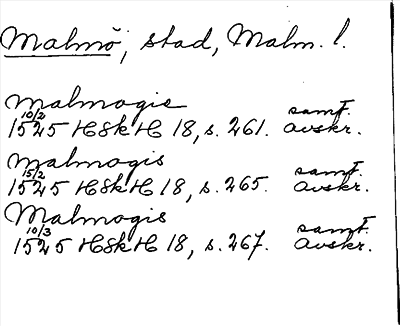 Malmö, stad, Malm. l.
Malmogis
10/2 samt.
1525 HSkH 18, s. 261. avskr.
Malmogis
15/2 samt.
1525 HSkH 18, s. 265. avskr.
Malmogis
10/3 samt.
1525 HSkH 18, s. 267. avskr.